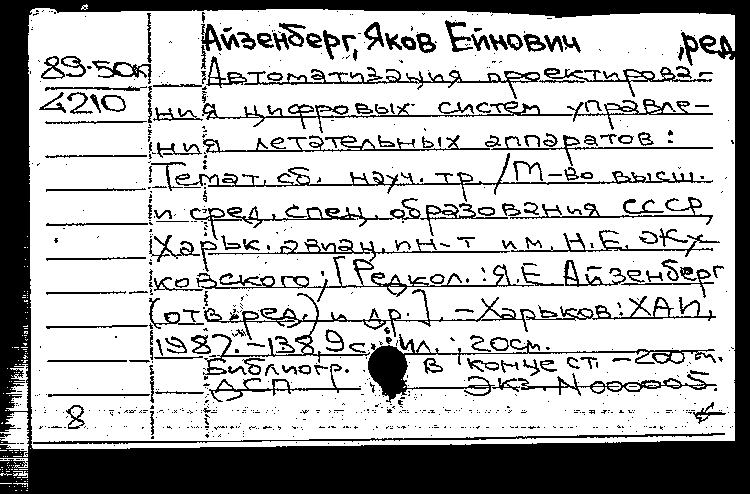 Айзенберг, Яков Ейнович ,ред
89-50к Автоматизация проектирова-
4210 ния цифровых систем управле-
ния летательных аппаратов :
Темат. сб. науч. тр. /М-во высш.
и сред. спец. образования СССР,
Харьк. авиац. ин-т им. Н.Е. Жу-
ковского; [Редкол.: Я.Е Айзенберг
(отв. ред.) и др.]. - Харьков: ХАИ,
1987. - 138,9 с.: ил. ; 20см.
Библиогр. в конце ст. - 200 т.
ДСП Экз. N 000005.
8